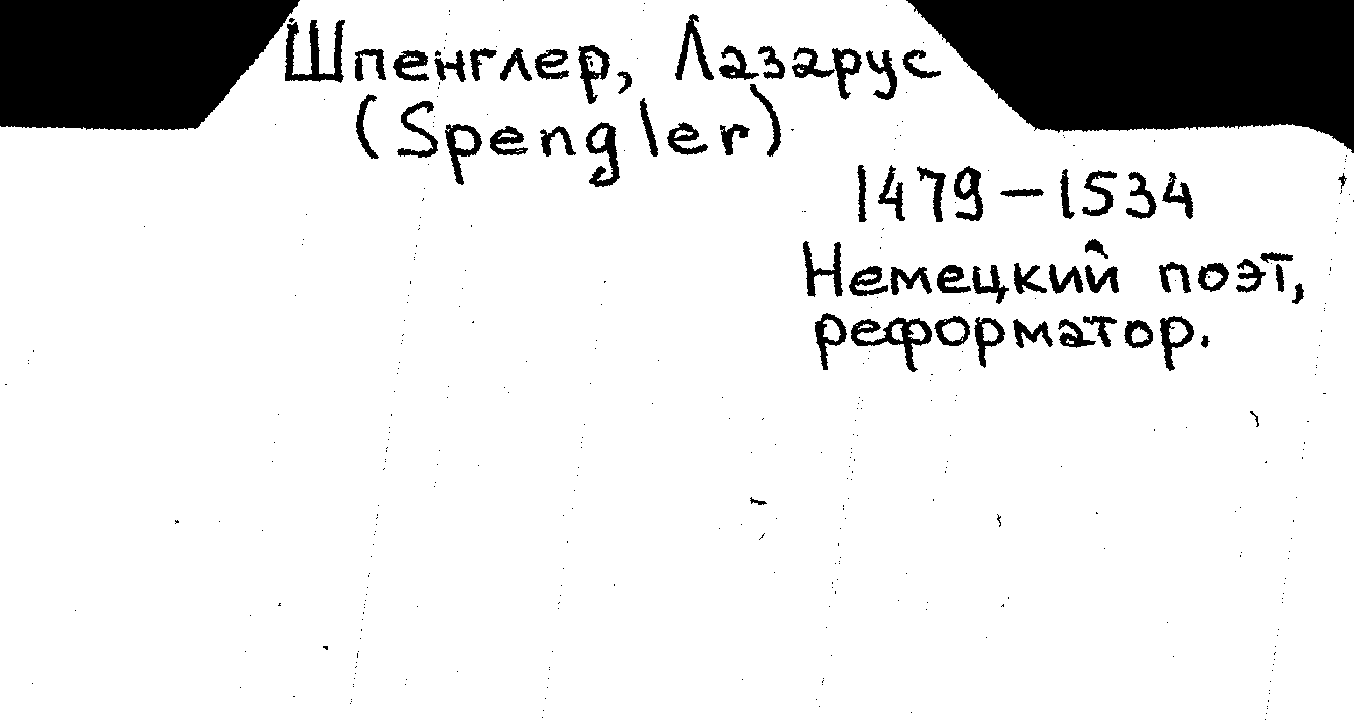 Шпенглер, Лазарус
(Spengler)
1479 – 1534
Немецкий поэт,
реформатор.